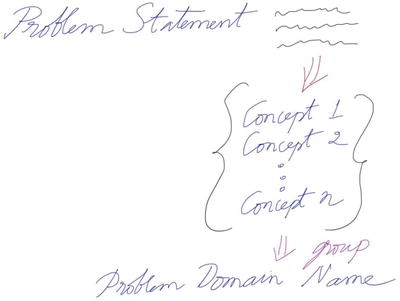 Problem Statement
Concept 1
Concept 2
Concept n
group
Problem Domain Name